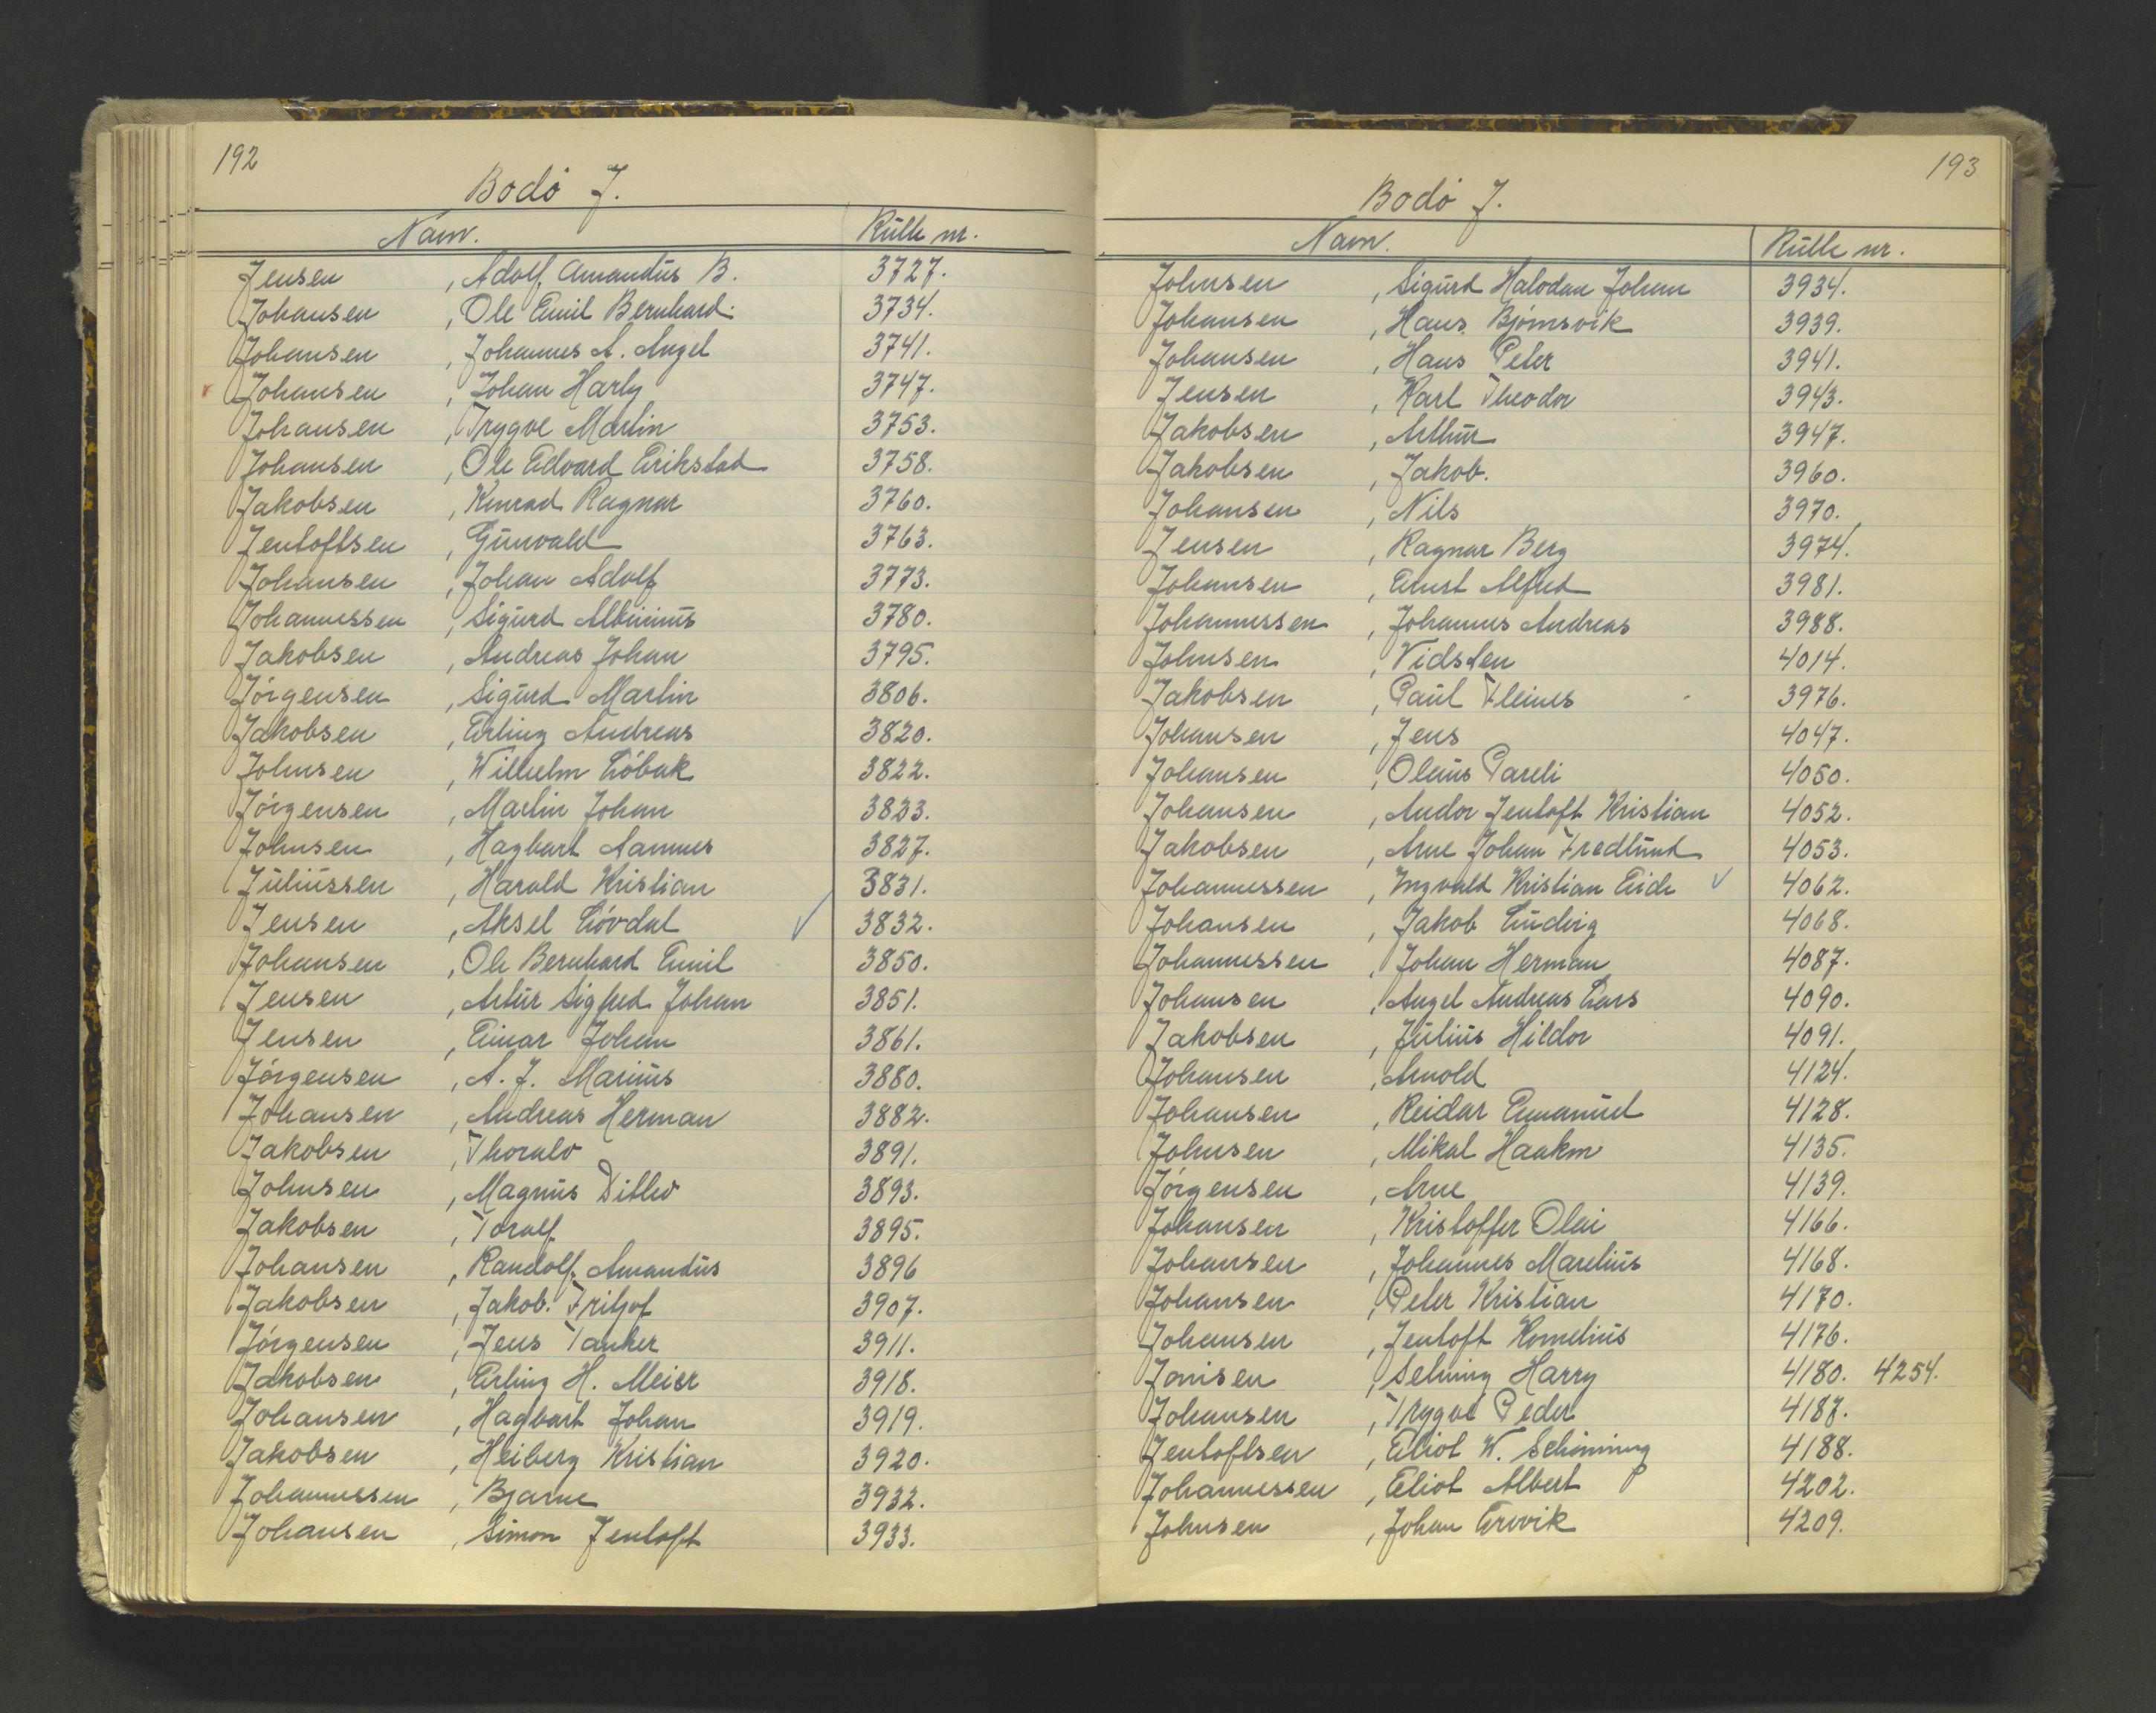 192
Bodö J.
Navn. Rulle nr.
Jensen , Adolf Amandus B. 3727.
Johansen , Ole Emil Bernhard. 3734.
Johansen , Johannes A. Angel 3741.
Johansen , Johan Harly 3747.
Johansen , Trygve Martin 3753.
Johansen , Ole Edvard Erikstad 3758.
Jakobsen , Konrad Ragnar 3760.
Jentoftsen , Gunvald 3763.
Johansen , Johan Adolf 3773.
Johannessen , Sigurd Albinius 3780.
Jakobsen , Andreas Johan 3795.
Jörgensen , Sigurd Martin 3806.
Jakobsen , Erling Andreas 3820.
Johnsen , Wilhelm Löbak 3822.
Jörgensen , Martin Johan 3823.
Johnsen , Hagbart Aannes 3827.
Juliussen , Harald Kristian 3831.
Jensen , Aksel Lövdal 3832.
Johansen , Ole Bernhard Emil 3850.
Jensen , Artur Sigfred Johan 3851.
Jensen , Einar Johan 3861.
Jörgensen , A. J. Marius 3880.
Johansen , Andreas Herman 3882.
Jakobsen , Thoralv 3891.
Johnsen , Magnus Ditlev 3893.
Jakobsen , Toralf 3895.
Johansen , Randolf Amandus 3896
Jakobsen , Jakob Fritjof 3907.
Jörgensen , Jens Tanker 3911.
Jakobsen , Erling H. Meier 3918.
Johansen , Hagbart Johan 3919.
Jakobsen , Heiberg Kristian 3920.
Johannessen , Bjarne 3932.
Johansen , Simon Jentoft 3933.
193
Bodö J.
Navn. Rulle nr.
Johnsen , Sigurd Halvdan Johan 3934.
Johansen , Hans Björnsvik 3939.
Johansen , Hans Peter 3941.
Jensen , Karl Theodor 3943.
Jakobsen , Arthur 3947.
Jakobsen , Jakob. 3960.
Johansen , Nils 3970.
Jensen , Ragnar Berg 3974.
Johansen , Ernst Alfred 3981.
Johannessen , Johannes Andreas 3988.
Johnsen , Vidsten 4014.
Jakobsen , Paul Fleines 3976.
Johansen , Jens 4047.
Johansen , Oleus Pareli 4050.
Johansen , Andor Jentoft Kristian 4052.
Jakobsen , Arne Johan Fredlund 4053.
Johannessen , Ingvald Kristian Eide 4062.
Johansen , Jakob Ludvig 4068.
Johannessen , Johan Herman 4087.
Johansen , Angel Andreas Lars 4090.
Jakobsen , Julius Hildor 4091.
Johansen , Arnold 4124.
Johansen , Reidar Emanuel 4128.
Johnsen , Mikal Haakon 4135.
Jörgensen , Arne 4139.
Johansen , Kristoffer Olai 4166.
Johansen , Johannes Marelius 4168.
Johansen , Peter Kristian 4170.
Johansen , Jentoft Kornelius 4176.
Jonisen , Selming Harry 4180. 4254.
Johansen , Trygve Peder 4187.
Jentoftsen , Eliot W. Schönning 4188.
Johannessen , Eliot Albert 4202.
Johnsen , Johan Ervik 4209.